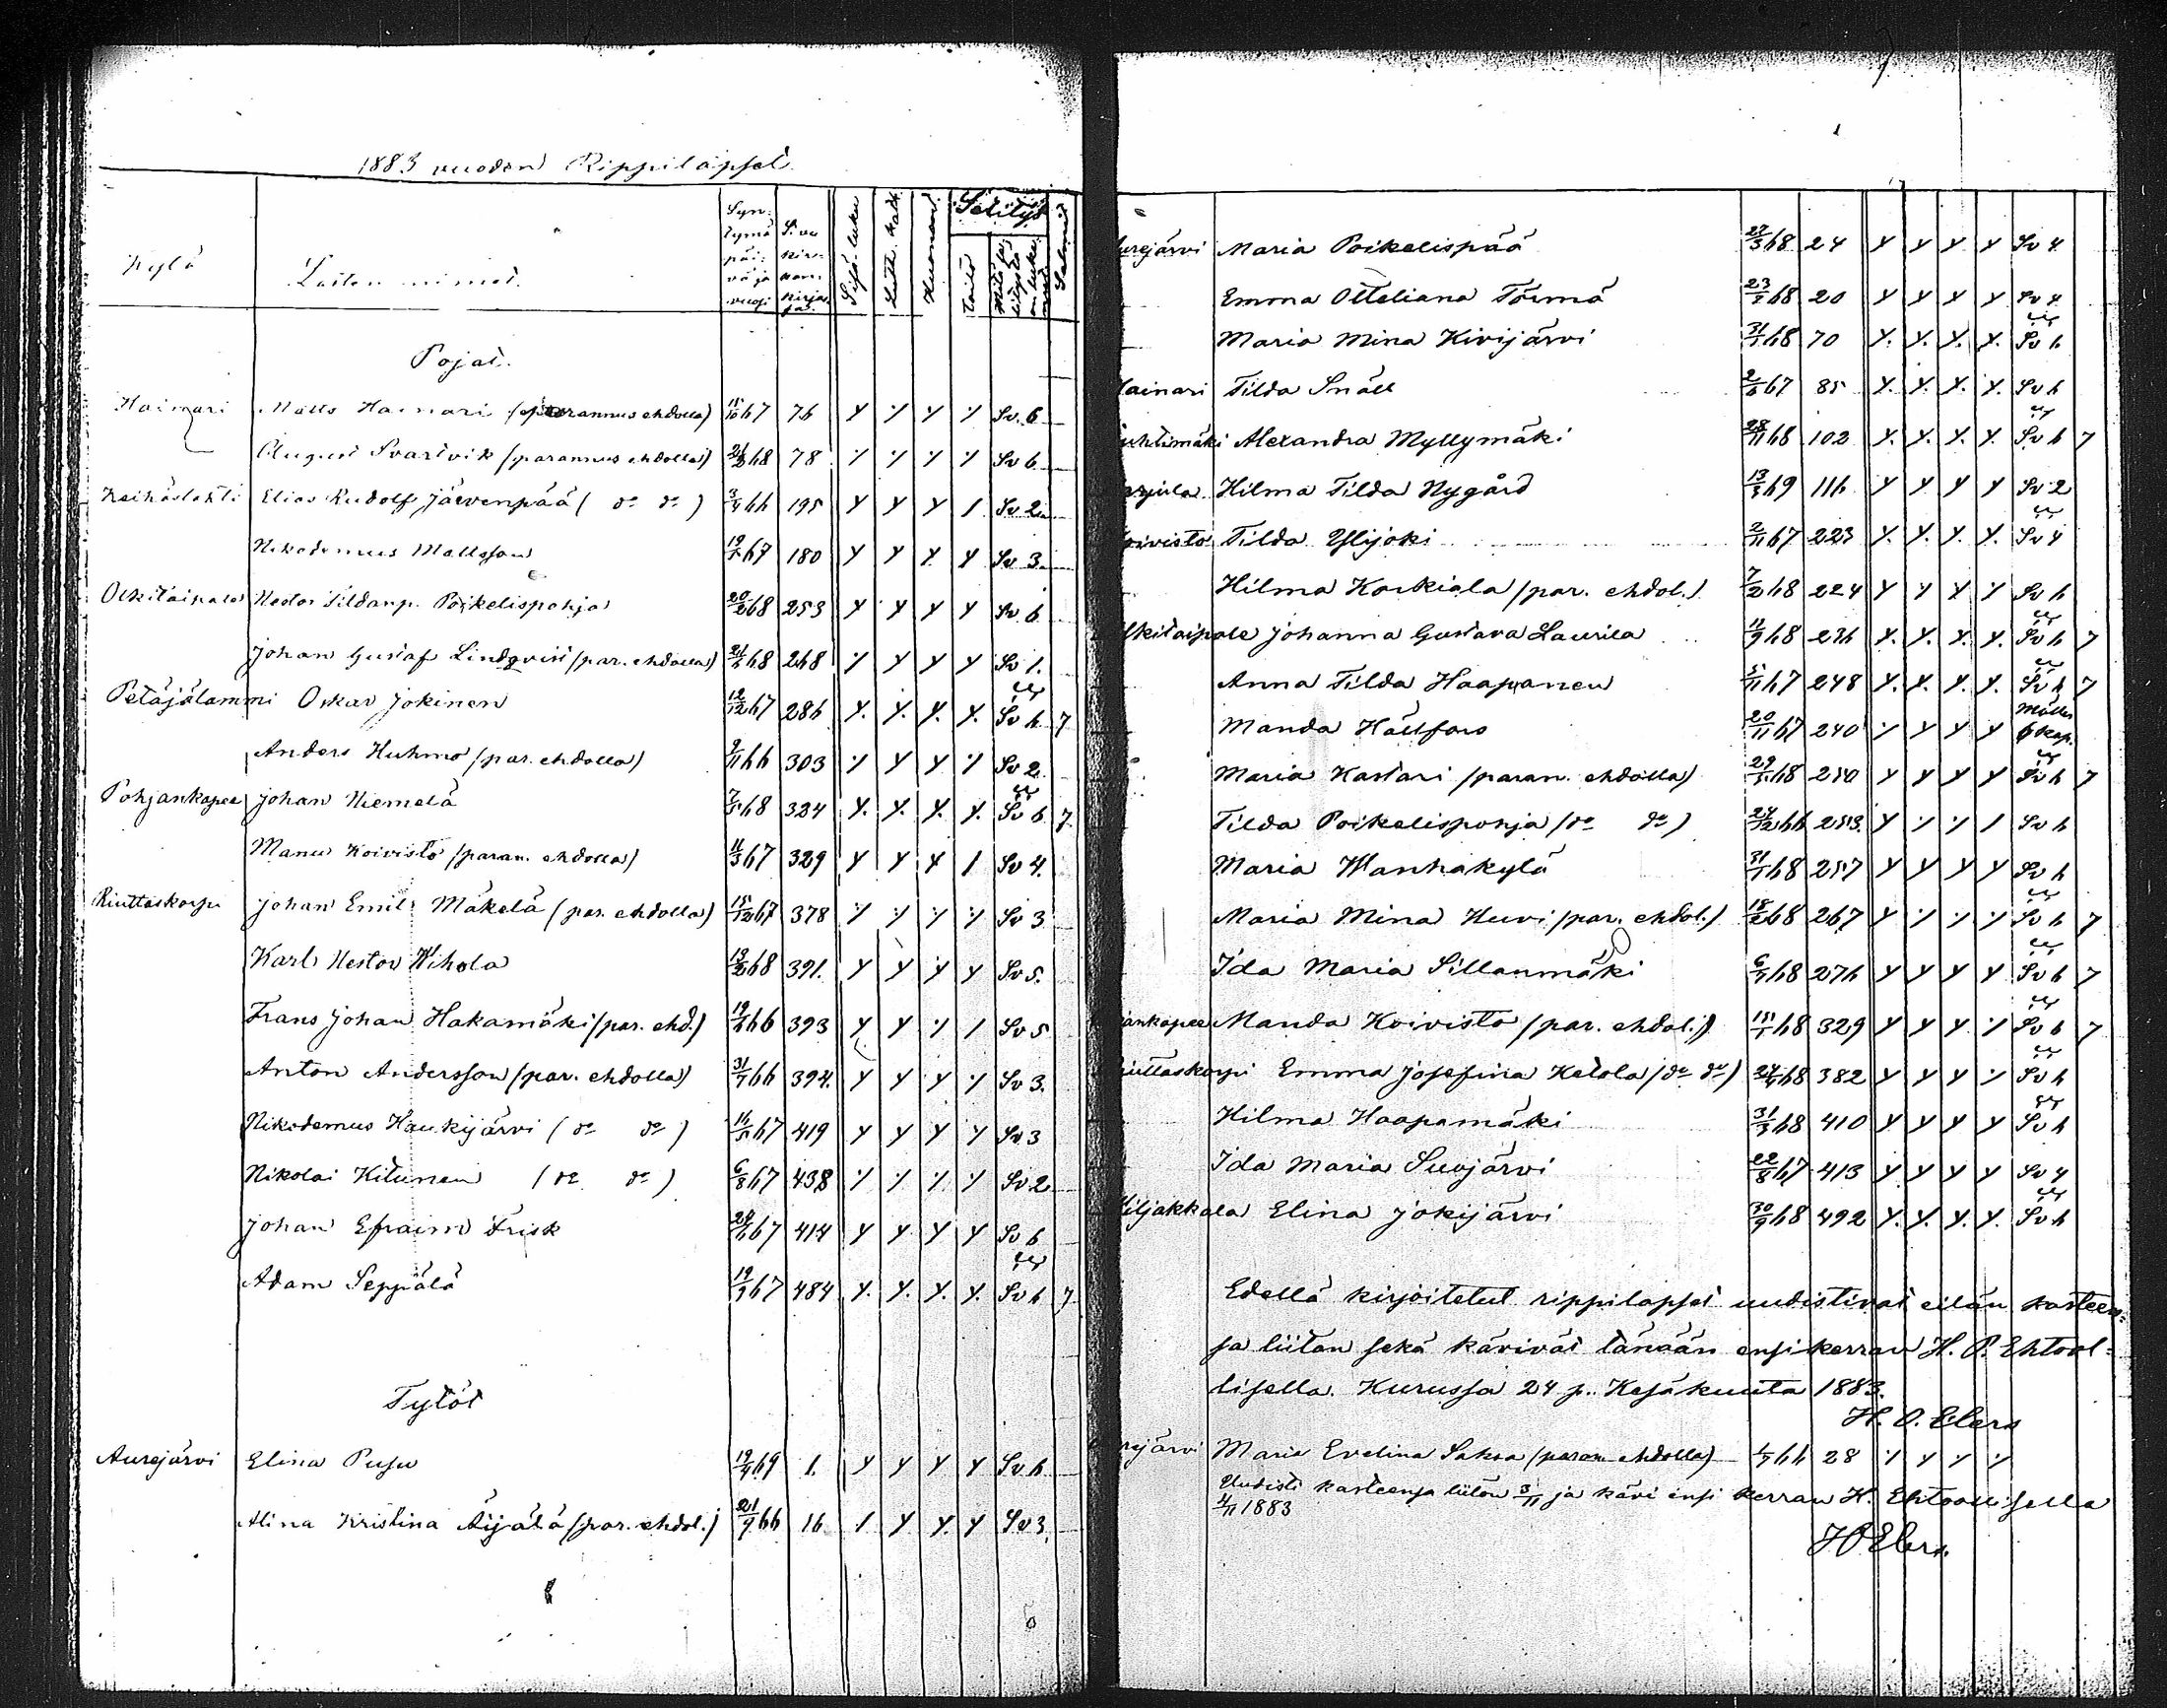 1883 vuoden Rippilapset
Kylä
Lasten nimet.
Syn-
tymä
päi-
vä ja
vuosi
Sivu
kir-
kon-
kirja
ssa
Sisä luku
Huonen.
Selitys
taito
Pojat.
Hainari Matts Hainari (parannus ehdolla) 15/10 67 76 Sv. 6
August Svartvik (parannus ehdolla) 68 78 Sv 6
Keihäslahti Elias Rudolf Järvenpää (do do) 3/4 66 195 Sv 2
Nikodemus Mattsson 180 Sv 3
Olkitaipale Nestor Poikelispohja 20/2 68 253 Sv 6
Johan Gustaf Lindqvist (par. ehdolla) 68 268 Sv 1.
Petäjälammi Oskar Jokinen 12/12 67 286 Sv 6 7
Anders Huhmo (par. ehdolla) 9/11 66 303 Sv 2
Pohjankapee Johan Niemelä 68 324 Sv 6 7
Manu Koivisto (paran. ehdolla) 11/3 67 329 Sv 4.
Riuttaskorpi Johan Emil Mäkelä (par. ehdolla) 15/12 67 378 Sv 3
Karl Nestor Wihola 13/2 68 391. Sv 5.
Frans Johan Hakamäki (par. ehd.) 66 393 Sv 5
Anton Andersson (par. ehdolla) 31/7 66 394. Sv 3.
Nikodemus Haukijärvi (do do) 67 419 Sv 3
Nikolai Kitunen (do do) 6/8 67 438 Sv 2
Johan Efraim Frisk 67 414 Sv 6
Adam Seppälä 19/9 67 484 Sv 6 7
Tytöt
Aurejärvi Elina Pusu 69 1. Sv 6
Alina Kristina Äijälä (par. ehdol.) 21/9 66 16 Sv 3
urejärvi Maria Poikelispää 27/3 68 24 Sv 4
Emma Otteliana Törmä 68 20 Sv 4
Maria Mina Kivijärvi 31/1 68 70 Sv 6
ainari Tilda Snäll 67 85 Sv 6
uhtimäki Alexandra Myllymäki 28/11 68 102 Sv 6 7
Hilma Tilda Nygård 13/3 69 116 Sv 2
oivisto Tilda Ylijoki 2/11 67 223 Sv 4
Hilma Korkiala (par. ehdol.) 7/2 68 224 Sv 6
lkitaipale Johanna Gustava Laurila 11/9 68 236 Sv 6 7
Anna Tilda Haapanen 5/11 67 248 Sv 6 7
Manda Hällfors 20/11 67 240 6 kap.
Maria Kastari (paran. ehdolla) 68 250 Sv 6 7
Tilda Poikelispohja (do do) 24/12 66 253. Sv 6
Maria Wanhakylä 31/1 68 257 Sv 6
Maria Mina Huvi (par. ehdol.) 18/2 68 267 Sv 6 7
Ida Maria Sillanmäki 68 276 Sv 6 7
jankapee Manda Koivisto (par. ehdol.) 15/1 68 329 Sv 6 7
iuttaskorpi Emma Josefina Ketola (do do) 68 382 Sv 6
Hilma Haapamäki 31/3 68 410 Sv 6
Ida Maria Suojärvi 22/8 67 413 Sv 4
iljakkala Elina Jokijärvi 30/9 68 492 Sv 6
Edellä kirjoitetut rippilapset uudistivat eilän kasteen-
sa liiton sekä kävivät tänään ensikerran H. P. Ehtool-
lisella. Kurussa 24 p. Kesäkuuta 1883.
H. O. Elers
rejärvi Maria Evelina Saksa (paran ehdolla) 66 28
Uudisti kasteensa liiton 3/11 ja kävi ensi kerran H. Ehtoollisella
4/11 1883
H O Elers.